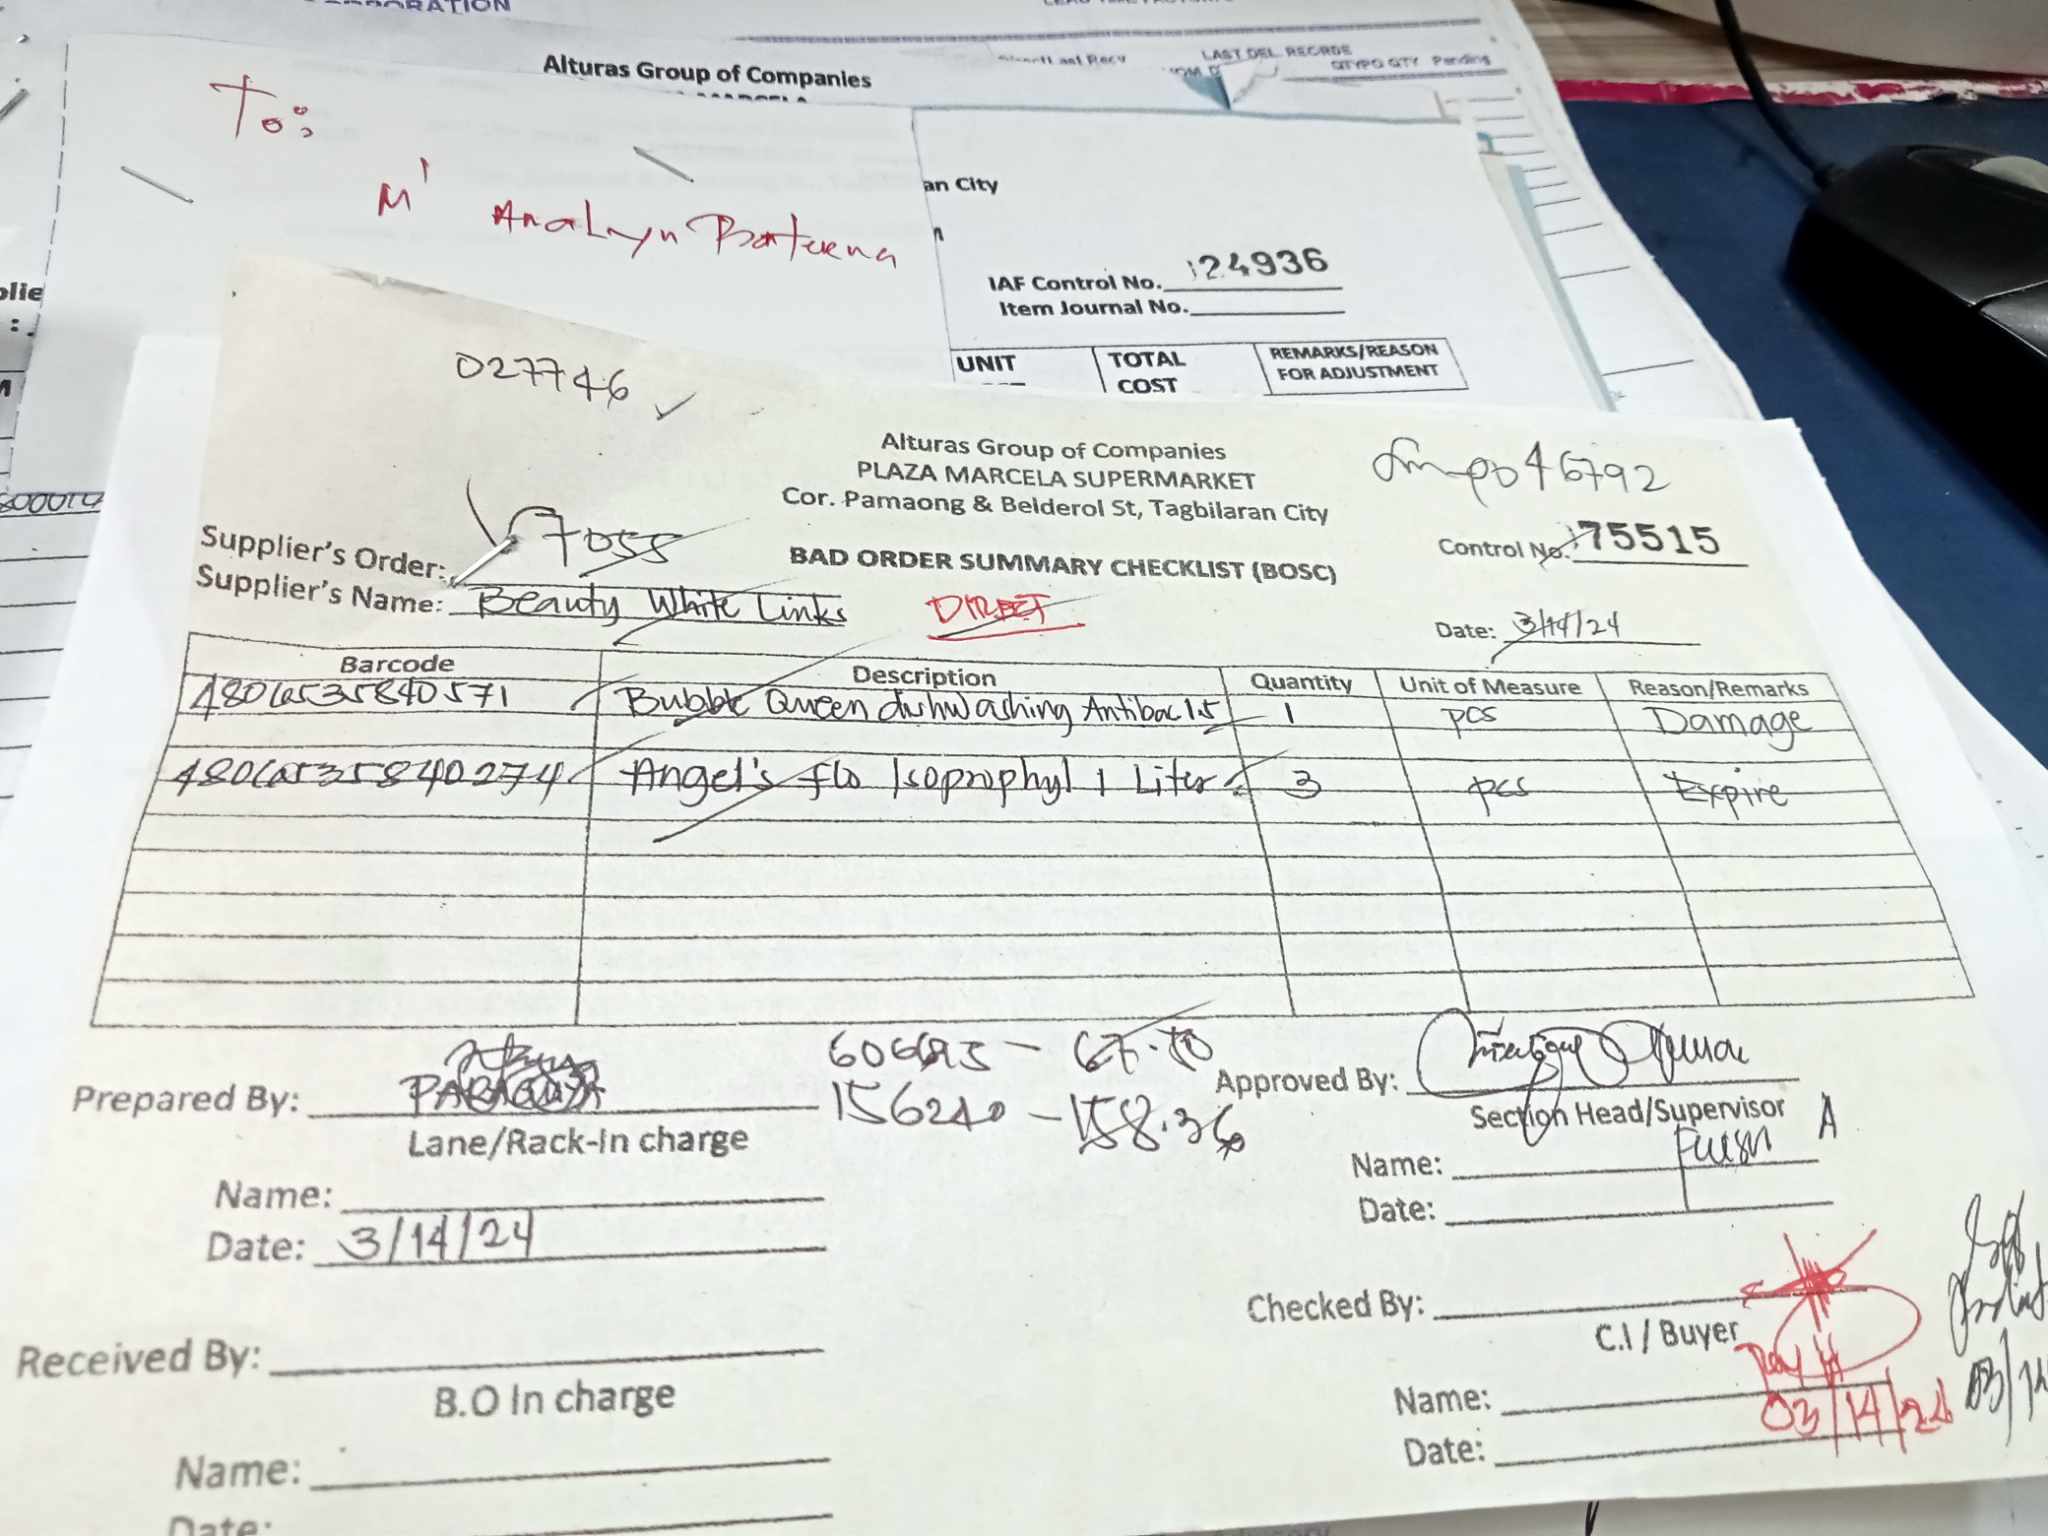 PORATION
LAST DEL. RECRDS
QTYPO QTY Pending
Alturas Group of Companies
To:
M' Analyn
an City
IAF Control No. 124936
Item Journal No.
UNIT
TOTAL
COST
REMARKS/REASON
FOR ADJUSTMENT
plie
027746
Alturas Group of Companies
PLAZA MARCELA SUPERMARKET
Cor. Pamaong & Belderol St, Tagbilaran City
Smpo46792
Control No. 75515
Supplier's Order: 7055
BAD ORDER SUMMARY CHECKLIST (BOSC)
Supplier's Name: Beauty White Links
DIRECT
Date: 3/14/24
Barcode Description Quantity Unit of Measure Reason/Remarks
4806535840571 Bubble Queen dishwashing Antibac 1.5 1 pcs Damage
4806535840274 Angel's flo Isoprophyl 1 Liter 3 pcs Expire
606695 - 67.70
156240 - 158.36
Prepared By:
Lane/Rack-In charge
Name:
Date: 3/14/24
Approved By:
Section Head/Supervisor
Name:
Date:
Received By:
B.O In charge
Name:
Date:
Checked By:
C.I / Buyer
Name:
03/14/24
Date:
03/14